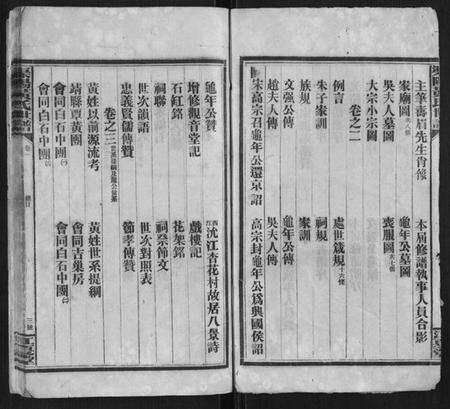 主筆壽眉先生肖像
本屆修譜執事人員合影
家廟圖
龜年公墓圖
吳夫人墓圖
喪服圖
大宗小宗圖
卷之二
例言
處世箴規十六條
朱子家訓
祠規
族規
家訓
文强公傳
龜年公傳
趙夫人傳
吳夫人傳
宋高宗召龜年公還京詔
高宗封龜年公爲興國侯詔
龜年公贊
江西沈江杏花村故居八景詩
增修觀音堂記
戲樓記
石缸銘
花架銘
祠聯
祠祭節文
世次韻語
世次對照表
忠義賢儒傳贊
節孝傳贊
卷之三
黃姓以前源流考
黃姓世系提綱
靖縣貫黃團
會同吉巢房
會同白石中團㈠
會同白石中團㈡
會同白石中團㈢